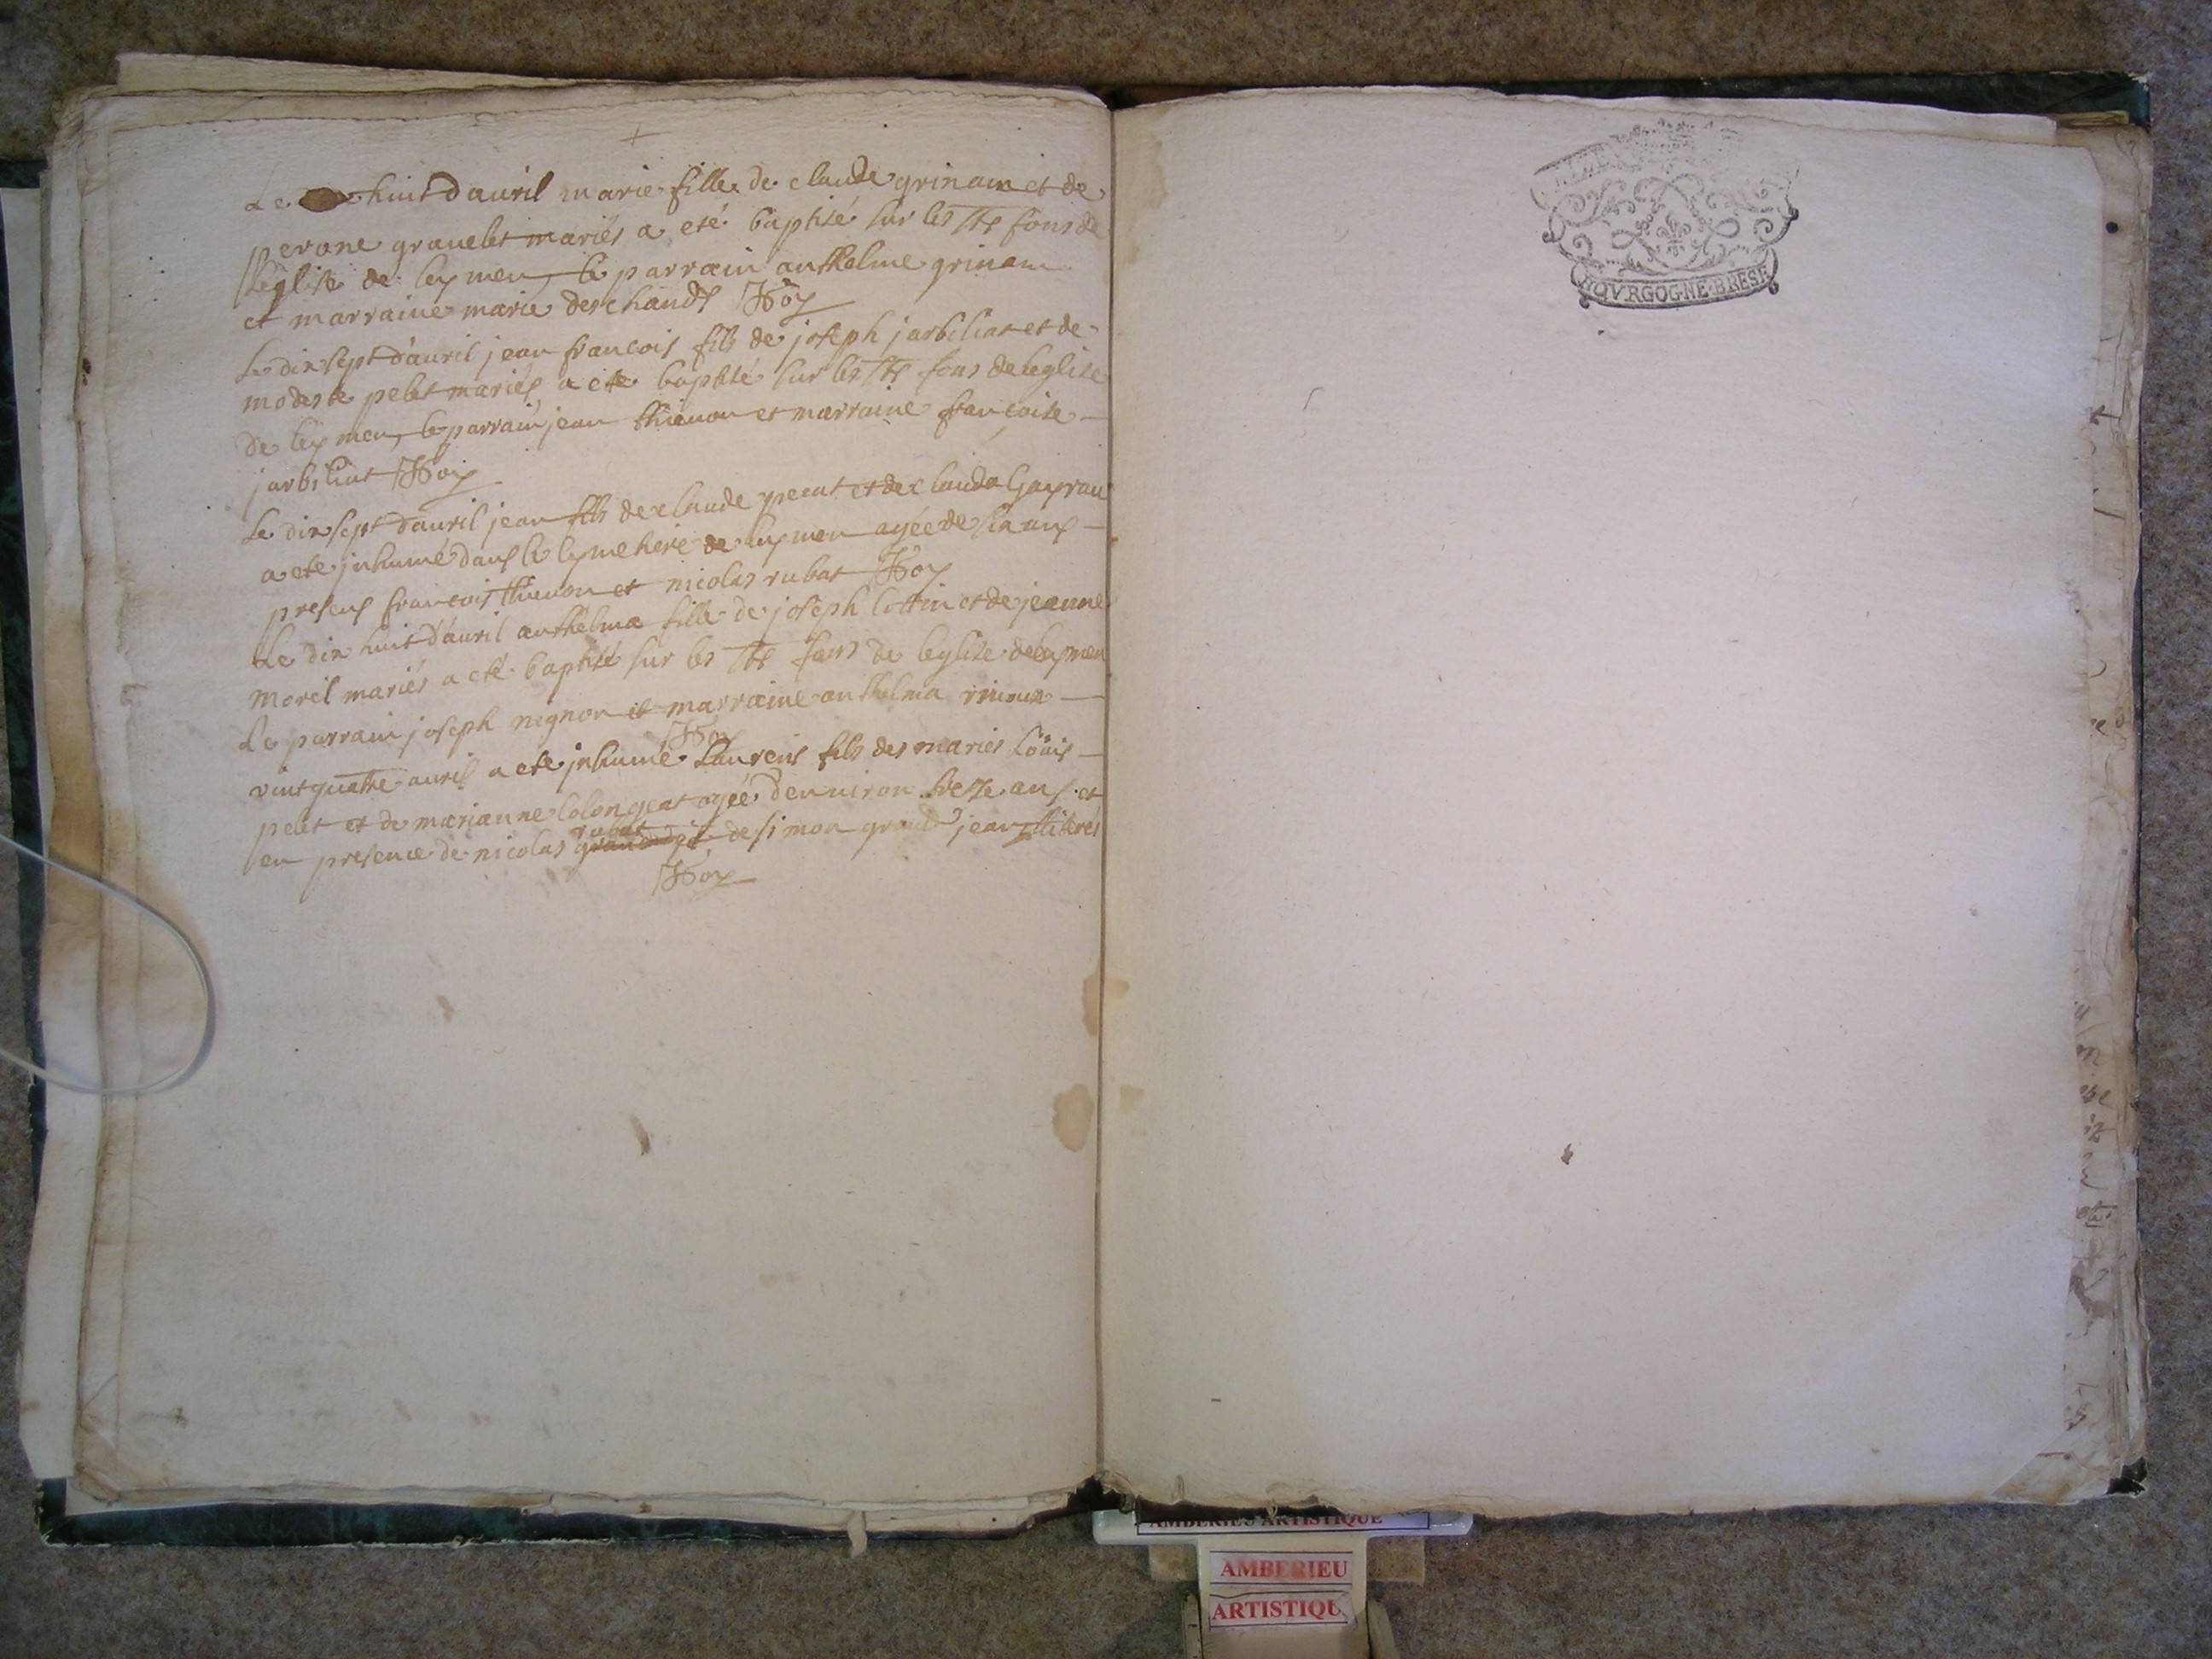 Le huit dauril marie fille de claude grinam et de
perone grauelet mariés a eté baptisé sur les Sts fons de
leglise de leymen, le parrain anthelme grinam
et marraine marie deschands Hoÿ
Le dix sept dauril jean francois fils de joseph jarbiliat et de
modeste pelet mariés a ete baptisé sur les Sts fons de leglise
de leymen, le parrain jean thieuon et marraine francoise
jarbiliat Hoÿ
Le dix sept dauril jean fils de claude pecat et de clauda
a ete jnhumé dans le symetiere de leymen agée de six ans
presens francois thieuon et nicolas rubat Hoÿ
Le dix huit dauril anthelma fille de joseph cottin et de jeanne
morel mariés a eté baptisé sur les Sts fons de leglise de leymen
Le parrain joseph nignon et marraine anthelma
Hoÿ
vint quattre auril a ete jnhumé Laurens fils des mariés Loüis
pelet et de marianne colongeat agée denuiron treize ans et
en presence de nicolas rubat de simon grand jean jlliterés
Hoÿ
BOVRGOGNE·BRESE
AMBERIEU ARTISTIQUE
AMBERIEU
ARTISTIQU